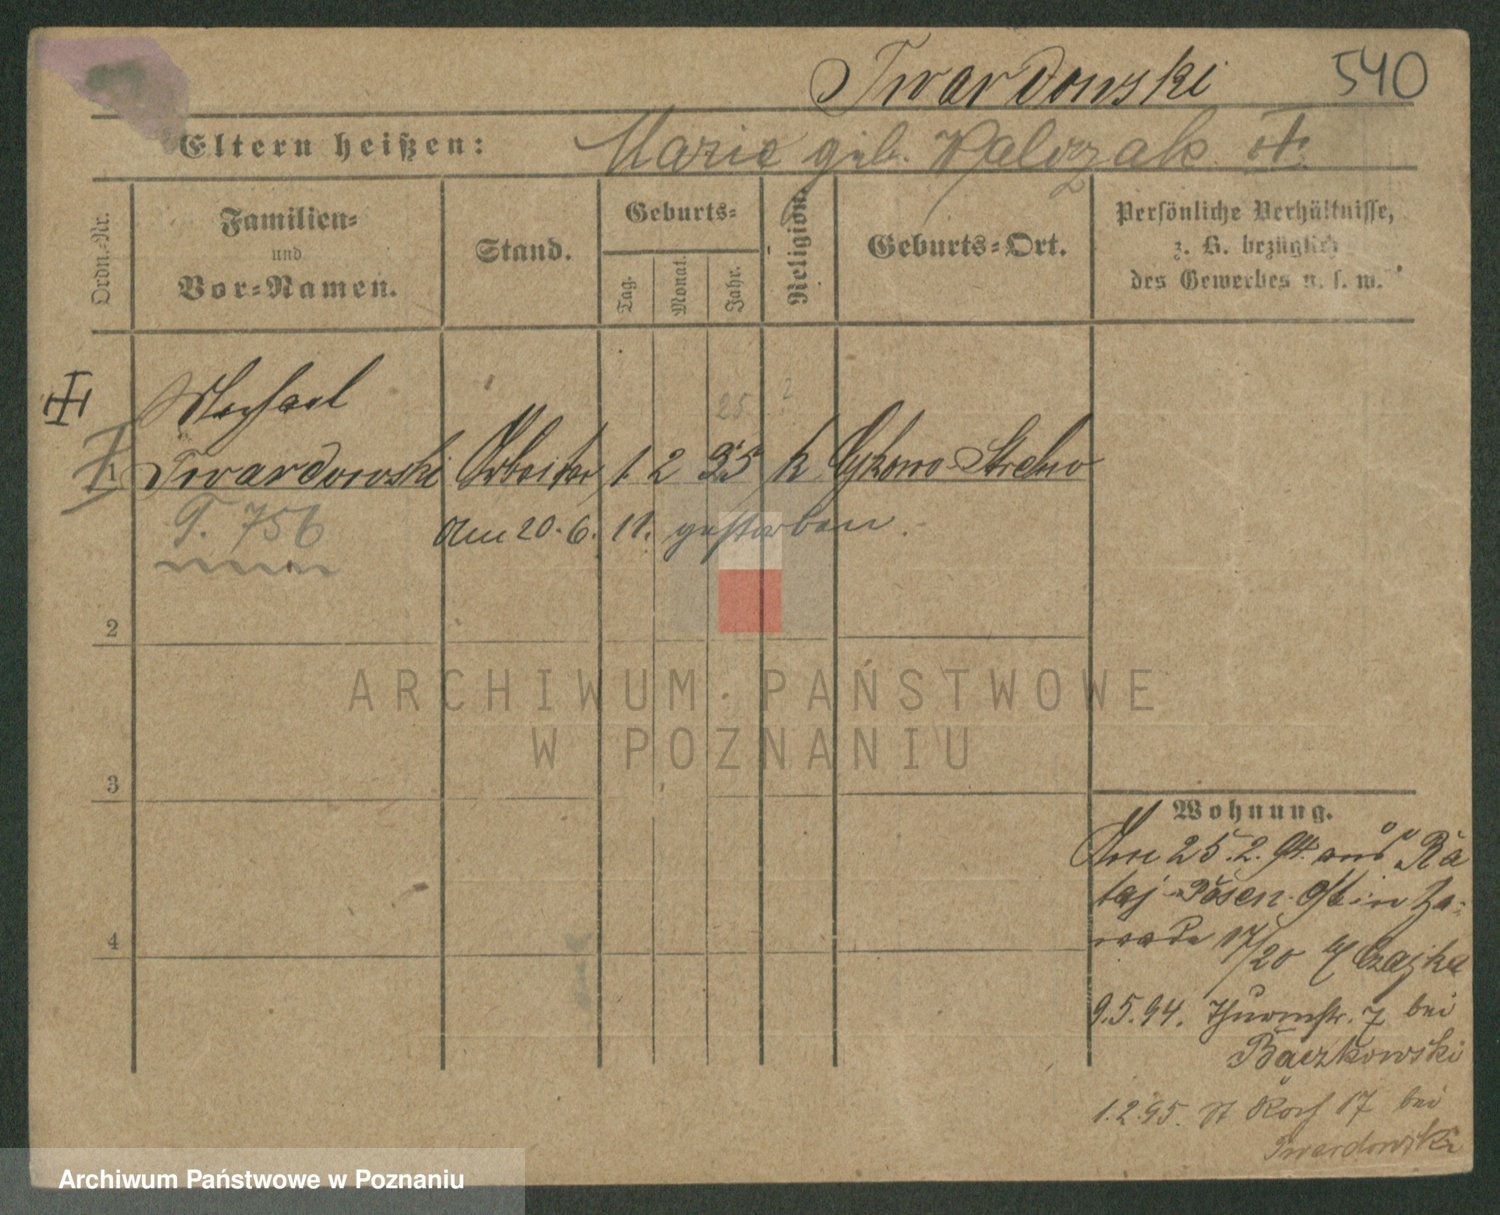 Twardowski 540
Eltern heißen: Marie geb. Walczak
Ordn.-Nr.
Familien-
und
Vor-Namen.
Stand.
Geburts-
Tag.
Monat.
Jahr.
Religion.
Geburts-Ort.
Persönliche Verhältnisse,
z. B. bezüglich
des Gewerbes u. s. w.
Michael
25
1 Twardowski Arbeiter 1 2 35 k Strelno
T. 756
Am 20.6.11. gestorben
2
3
4
ARCHIWUM PAŃSTWOWE
W POZNANIU
Wohnung.
Am 25.2.94. aus Ra
taj Posen Ost in Za-
wade 17/20 Czajka
9.5.94. Thurmstr. 7 bei
Bączkowski
1.2.95. St Roch 17 bei
Twardowski
Archiwum Państwowe w Poznaniu